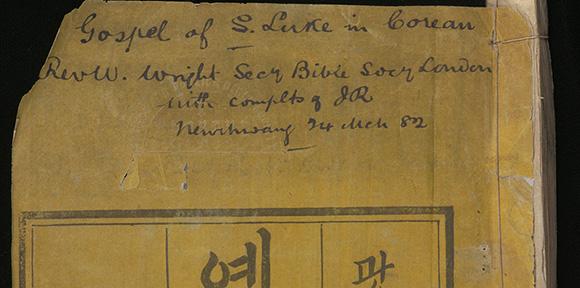 Gospel of S. Luke in Corean
Rev W. Wright Secy Bible Socy London
with complts of JR
Newchwang 24 Mch 82
예 광